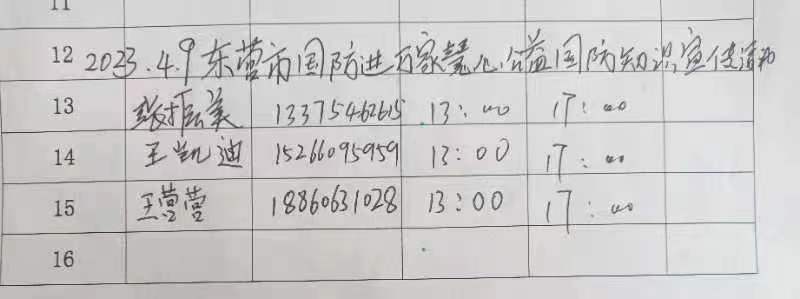 11
12 2023.4.9东营市国防进万家慧心公益国防知识宣传活动
13 张振美 13375462615 13:00 17:00
14 王凯迪 15266095959 13:00 17:00
15 王营营 18860631028 13:00 17:00
16